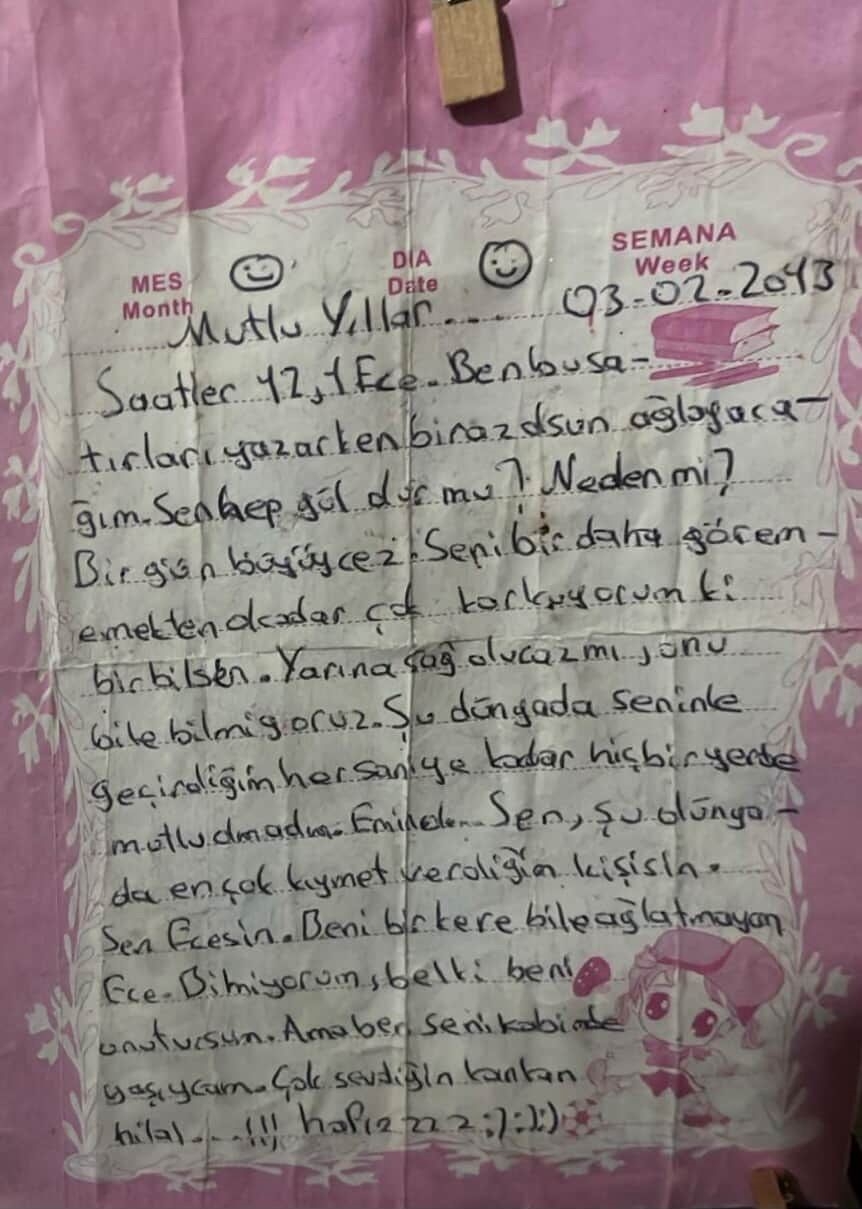 MES
Month
DIA
Date
SEMANA
Week
Mutlu Yıllar.... 03-02-2013
Saatler 12,1 Ece. Ben bu sa-
tırları yazarken biraz dsun ağlayaca-
ğım. Sen hep gül dur mu? Neden mi?
Bir gün büyüycez. Seni bir daha görem-
emekten okadar çok korkuyorum ki
bir bilsen. Yarına sağ olucazmı, onu
bile bilmiyoruz. Şu dünyada seninle
geçirdiğim her saniye kadar hiçbir yerde
mutlu olmadım. Eminol... Sen, şu dünya-
da en çok kıymet verdiğim kişisin.
Sen Ecesin. Beni bir kere bile ağlatmayan
Ece. Bilmiyorum, belki beni
unutursun. Ama ben seni kabimde
yaşıycam. Çok sevdiğin kankan
hilal....!!! :):):)